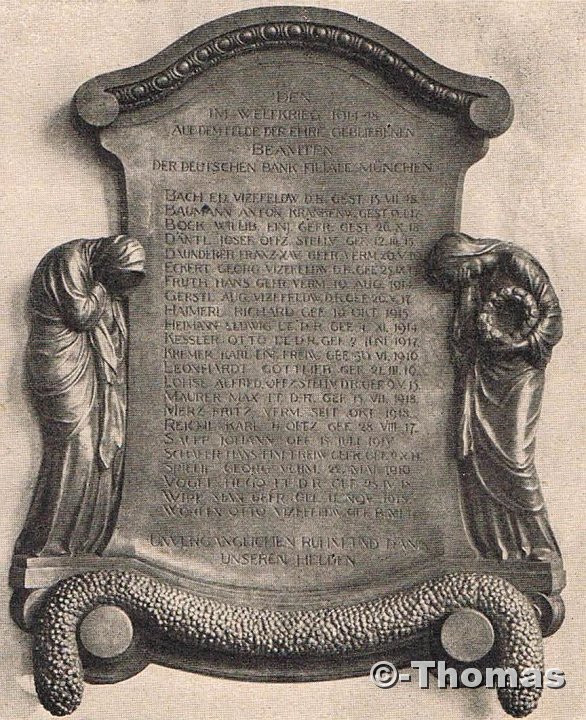 DEN
IM WELTKRIEG 1914-18
AUF DEM FELDE DER EHRE GEBLIEBENEN
BEAMTEN
DER DEUTSCHEN BANK FILIALE MÜNCHEN
BACH ED. VIZEFELDW. D.R. GEST. 15. VII. 18.
BAUMANN ANTON KRANKENW. GEST.
BOCK WILLIB. EINJ. GEFR. GEST. 26. X. 18.
DÄNTL JOSEF OFFZ. STELLV. GEF. 12. III. 15.
DAUNDERER FRANZ XAV. GEFR. VERM.
ECKERT GEORG VIZEFELDW. D.R. GEF.
FRUTH HANS GEFR. VERM. 19. AUG. 1914
GERSTL AUG. VIZEFELDW. D.R. GEF. 26. X. 17.
HAIMERL RICHARD GEF. OKT. 1915.
HEIMANN LUDWIG LT. D.R. GEF. 4. XI. 1914
KESSLER OTTO LT. D.R. GEF. JUNI 1917.
KREMER KARL EINJ. FREIW. GEF. 30. VI. 1916
LEONHARDT GOTTLIEB GEF. 21. III. 16
LOHSE ALFRED OFFZ. STELLV. D.R. GEF. 9. V. 15.
MAURER MAX LT. D.R. GEF. 15. VII. 1918.
MERZ FRITZ VERM. SEIT OKT. 1918.
REICHL KARL OFFZ. GEF. 28. VIII. 17.
JOHANN GEF. 15. JULI
SCHÄFER HANS EINJ. FREIW. GEFR. GEF.
GEORG VERM. MAI 1916
VOGEL HUGO LT. D.R. GEF. 25. IV. 18.
MAX GEFR. GEF. NOV.
OTTO VIZEFELDW. GEF.
UNVERGÄNGLICHEN RUHM UND DANK
UNSEREN HELDEN
©-Thomas